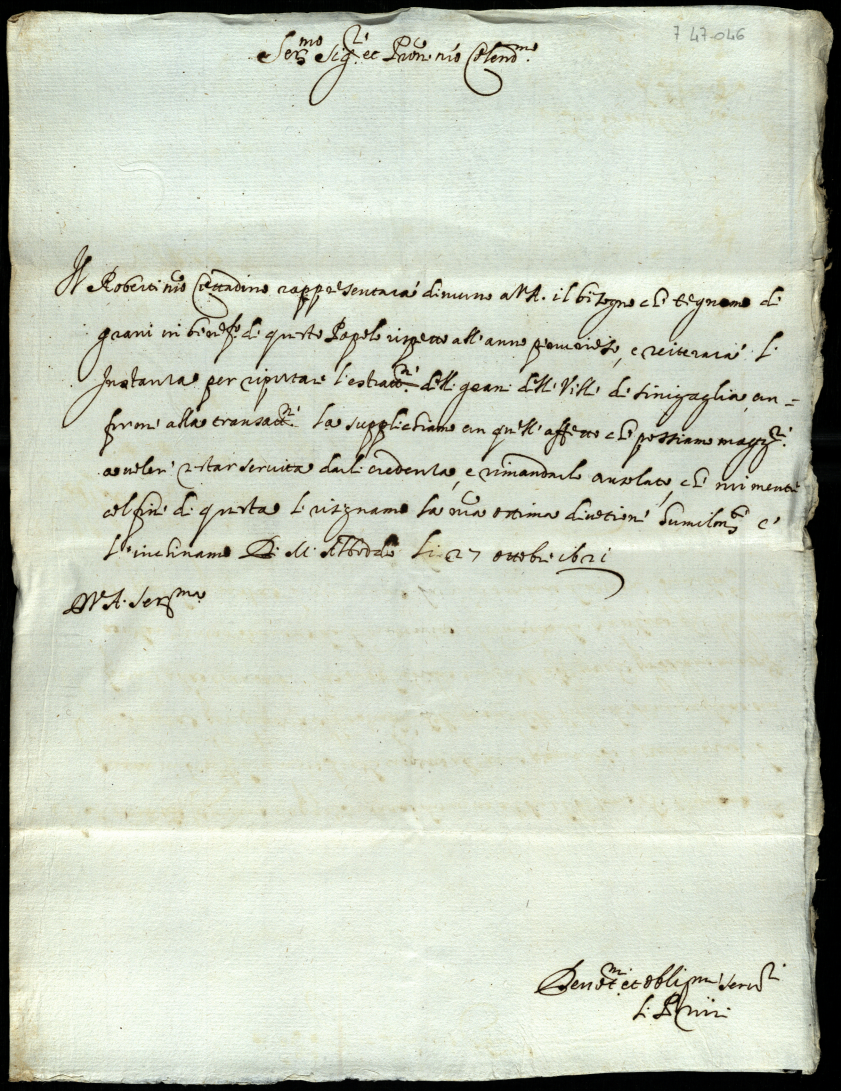 7 47-046
Ser.mo Sig.r et Pron nro Colend.mo
Il Roberti nro Cittadino rappresentarà di nuovo a V.A. il bisogno che tegnamo di
grani in benef.o di questo Popolo rispetto all'anno penurioso, e reiterarà l'
Instanza per riportare l'estratt.ne delli grani delle Ville di Sinigaglia, con=
forme alla transatt.ne La supplichiamo con quell'affetto che possiamo magg.re
a voler restar servita darli credenza, e rimandarlo consolato, che mentre
col fine di questa li rasegnamo la nra ottima divotione humilm.te e
l'inchinamo Di M. Alboddo li 27 ottobre 1621
D V. A. Ser.ma
Devot.mi et obblig.mi Serv.ri
Li Priori